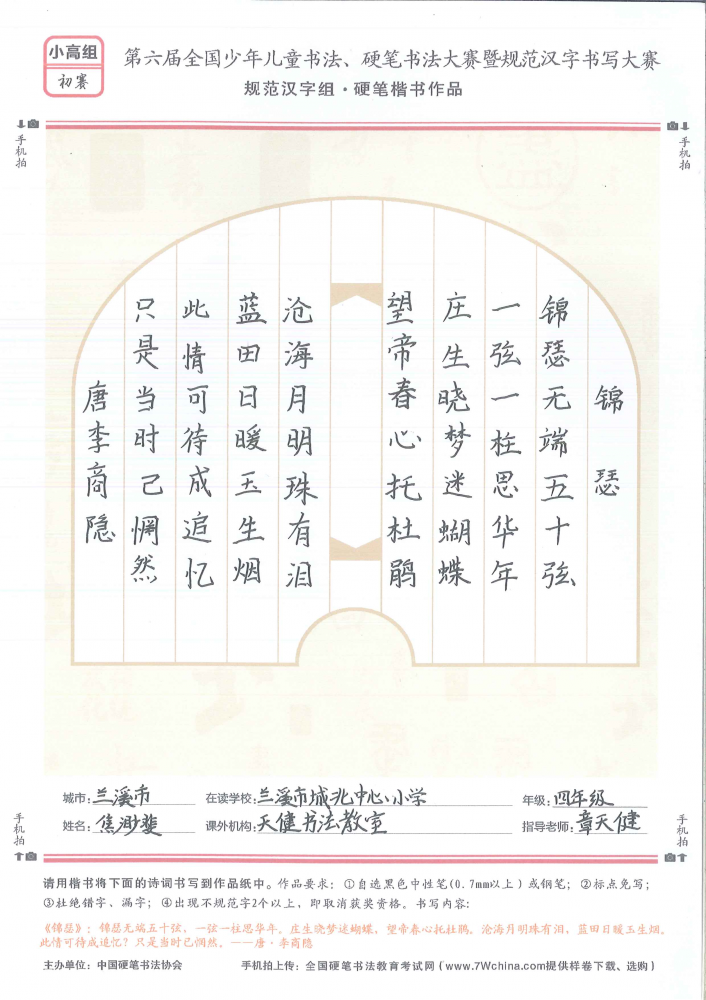 小高组
初赛
第六届全国少年儿童书法、硬笔书法大赛暨规范汉字书写大赛
规范汉字组·硬笔楷书作品
手机拍
手机拍
锦瑟
锦瑟无端五十弦
一弦一柱思华年
庄生晓梦迷蝴蝶
望帝春心托杜鹃
沧海月明珠有泪
蓝田日暖玉生烟
此情可待成追忆
只是当时已惘然
唐李商隐
城市:兰溪市 在读学校:兰溪市城北中心小学 年级:四年级
姓名:焦渺斐 课外机构:天健书法教室 指导老师:章天健
手机拍
手机拍
请用楷书将下面的诗词书写到作品纸中。作品要求:①自选黑色中性笔(0.7mm以上)或钢笔;②标点免写;
③杜绝错字、漏字;④出现不规范字2个以上,即取消获奖资格。书写内容:
《锦瑟》:锦瑟无端五十弦,一弦一柱思华年。庄生晓梦迷蝴蝶,望帝春心托杜鹃。沧海月明珠有泪,蓝田日暖玉生烟。
此情可待成追忆?只是当时已惘然。——唐·李商隐
主办单位:中国硬笔书法协会 手机拍上传:全国硬笔书法教育考试网(www.7Wchina.com提供样卷下载、选购)